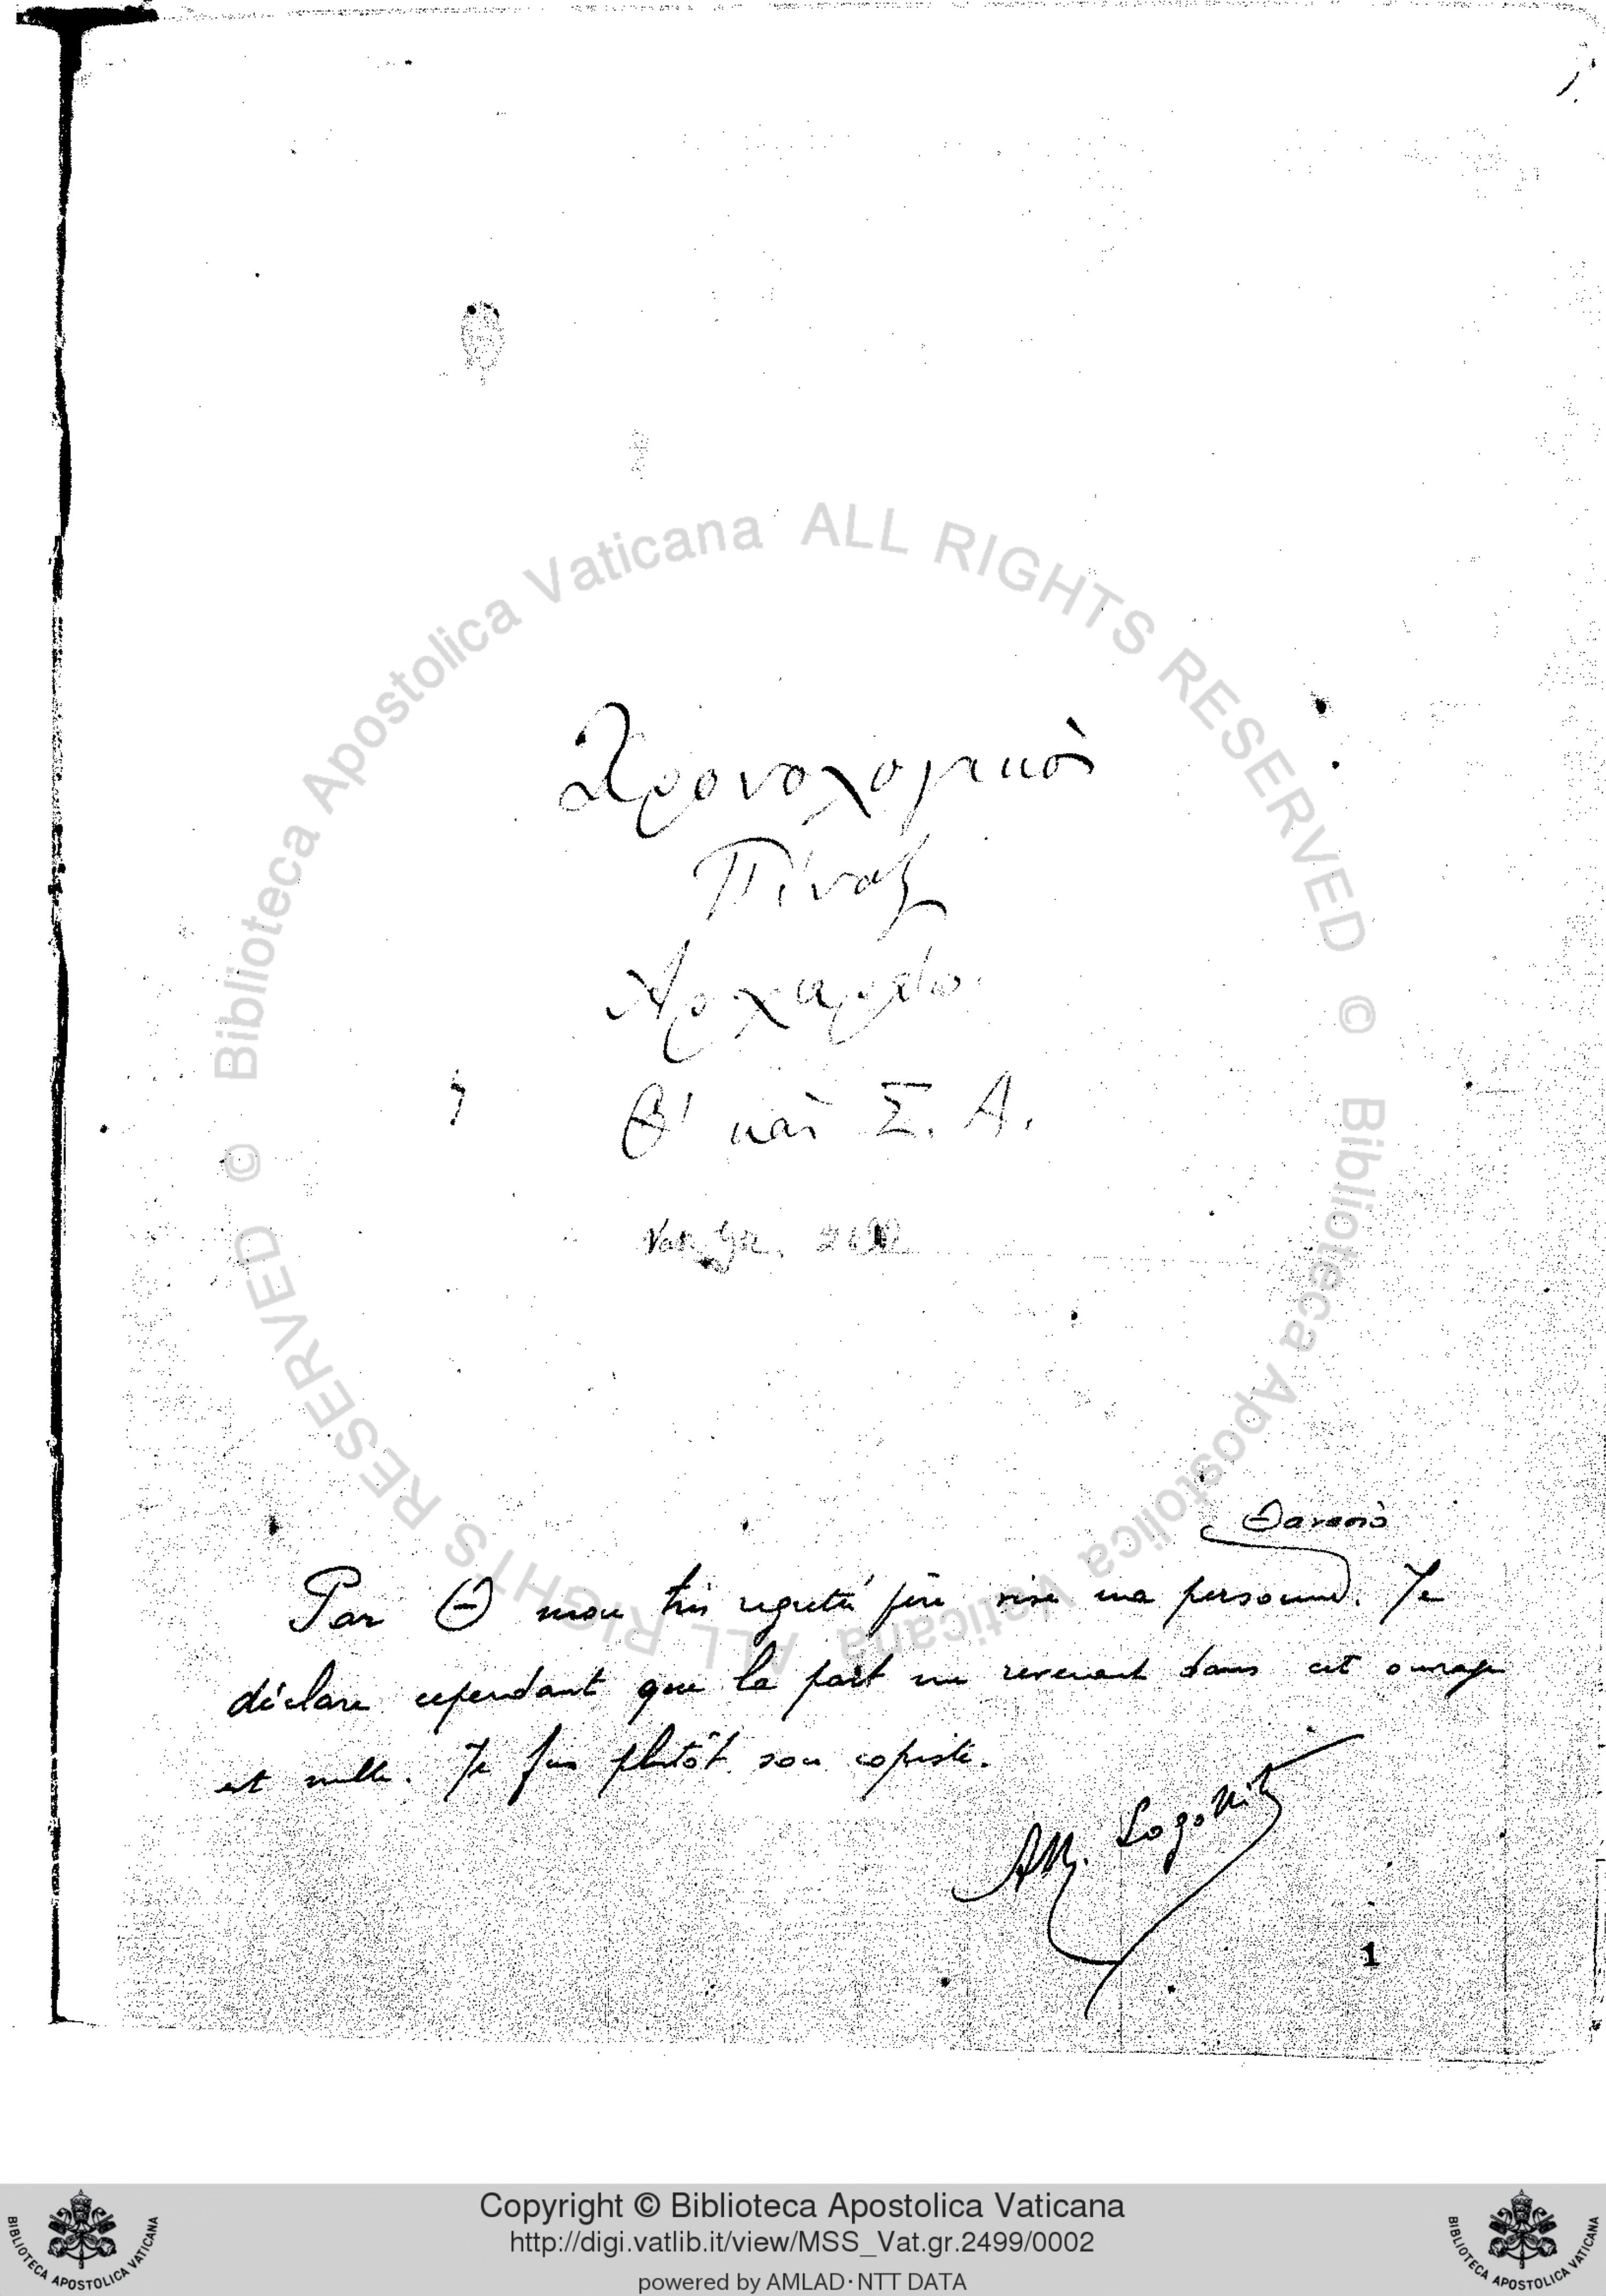 Χρονολογικὸς
Πίναξ
Θ' καὶ Σ. Α.
Vat. gr. 2499
Par Θ mon très regretté père vise ma personne. Je
déclare cependant que la part me revenant dans cet ouvrage
est nulle. Je fus plutôt son copiste.
1
Copyright © Biblioteca Apostolica Vaticana
http://digi.vatlib.it/view/MSS_Vat.gr.2499/0002
powered by AMLAD·NTT DATA
© Biblioteca Apostolica Vaticana ALL RIGHTS RESERVED © Biblioteca Apostolica Vaticana ALL RIGHTS RESERVED
BIBLIOTECA APOSTOLICA VATICANA
BIBLIOTECA APOSTOLICA VATICANA